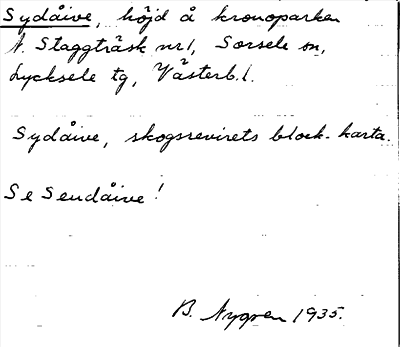 Sydåive, höjd å kronoparken
N. Staggträsk nr 1, Sorsele sn,
Lycksele tg, Västerb. l.
Sydåive, skogsrevirets block-karta.
Se Seudåive!
B. Nygren 1935.